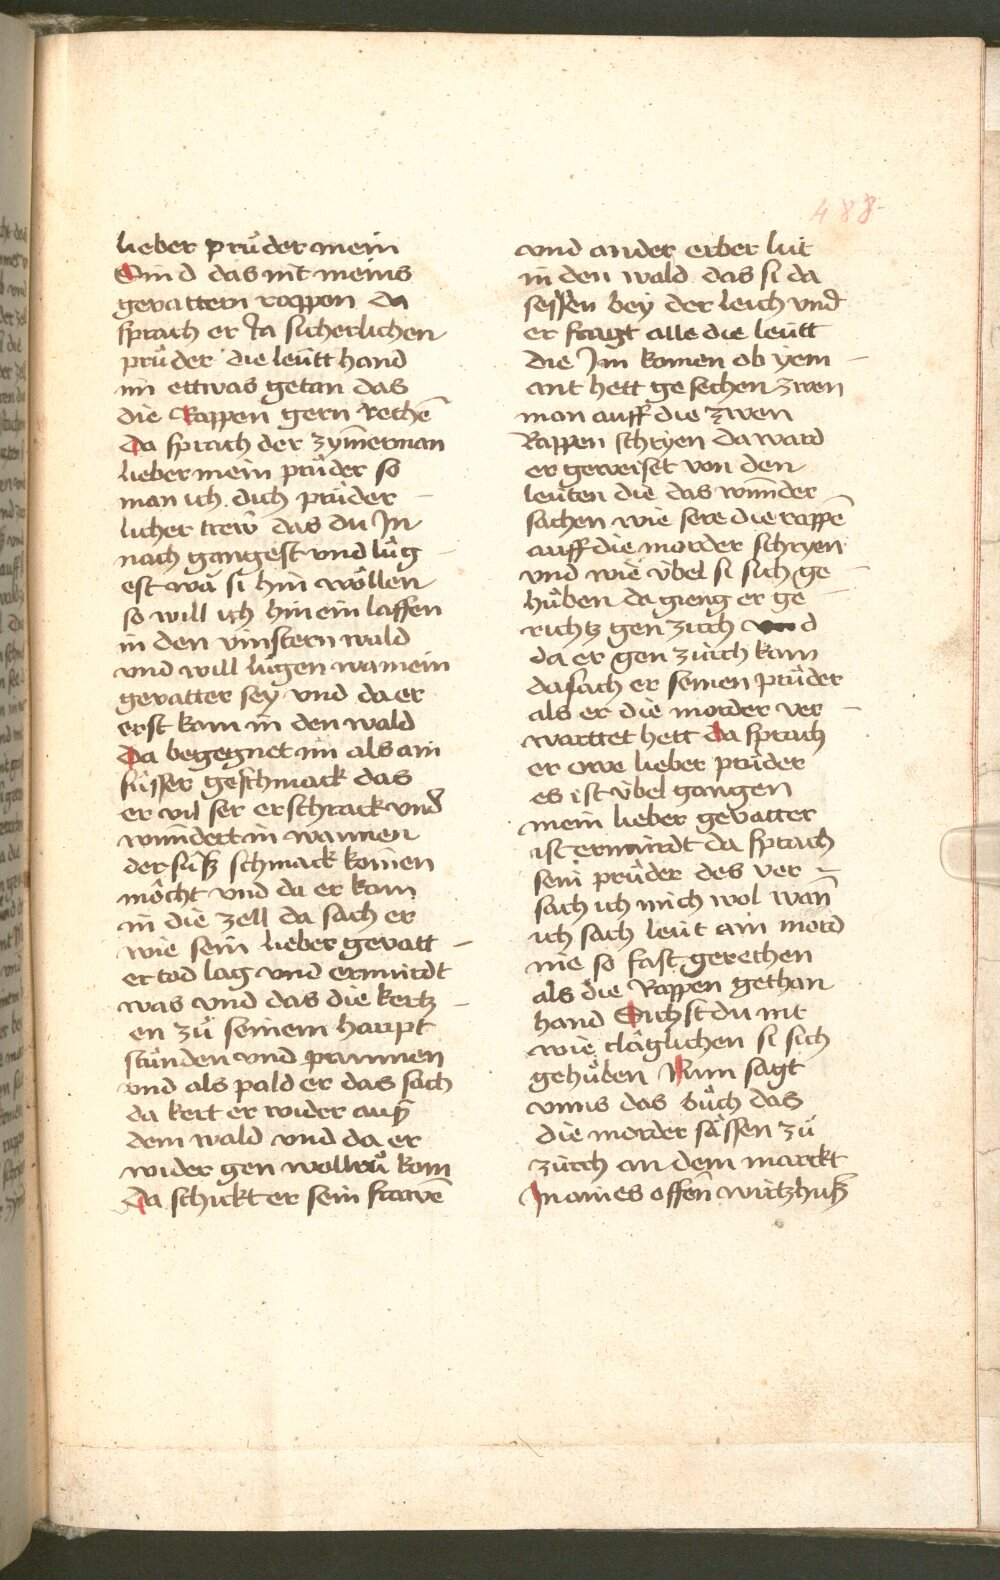 488
lieber průder mein
Sind das nit meins
gevattern rappen da
sprach er Ja sicherlichen
průder die leütt hand
im ettwas getan das
die Rappen gern rechē
Da sprach der zym̄erman
lieber mein průder so
man ich dich průder –
licher trew das du In
nach gangest vnd lůg –
est wa si hin wöllen
so will ich hin ein laffen
in den vinstern wald
vnd will lůgen wa mein
gevatter sey vnd da er
erst kam in den wald
Da begegnet im als ain
süsser geschmack das
er vil ser erschrack vnd
wundert in wannen
der süß schmack komen
möcht vnd da er kam
in die zell da sach er
wie sein lieber gevatt –
er tod lag vnd ermürdt
was vnd das die kertz –
en zů seinem haupt
stůnden vnd prannen
vnd als pald er das sach
da kert er wider auß
dem wald vnd da er
wider gen wollrů kom
Da schickt er sein frawē
vnd ander erber lüt
in den wald das si da
sessen bey der leich vnd
er fragt alle die leütt
die Im komen ob yem –
ant hett gesechen zwen
man auff die zwen
Rappen schryen da ward
er geweiset von den
leüten die das wunder
sachen wie sere die rappē
auff die morder schryen
vnd wie übel si sich ge –
hůben da gieng er ge –
richtz gen zürch vnd
da er gen zürch kam
da sach er seinen průder
als er die morder ver –
warttet hett da sprach
er owe lieber průder
es ist übel gangen
mein lieber gevatter
ist ermürdt da sprach
sein průder des ver –
sach ich mich wol wan̄
ich sach leüt ain mord
nie so fast gerechen
als die Rappen gethan
hand Sichst du nit
wie cläglichen si sich
gehůben Nun sagt
vnns das bůch das
die morder sässen zů
zürch an dem marckt
In aines offen̄ wirtzhuß